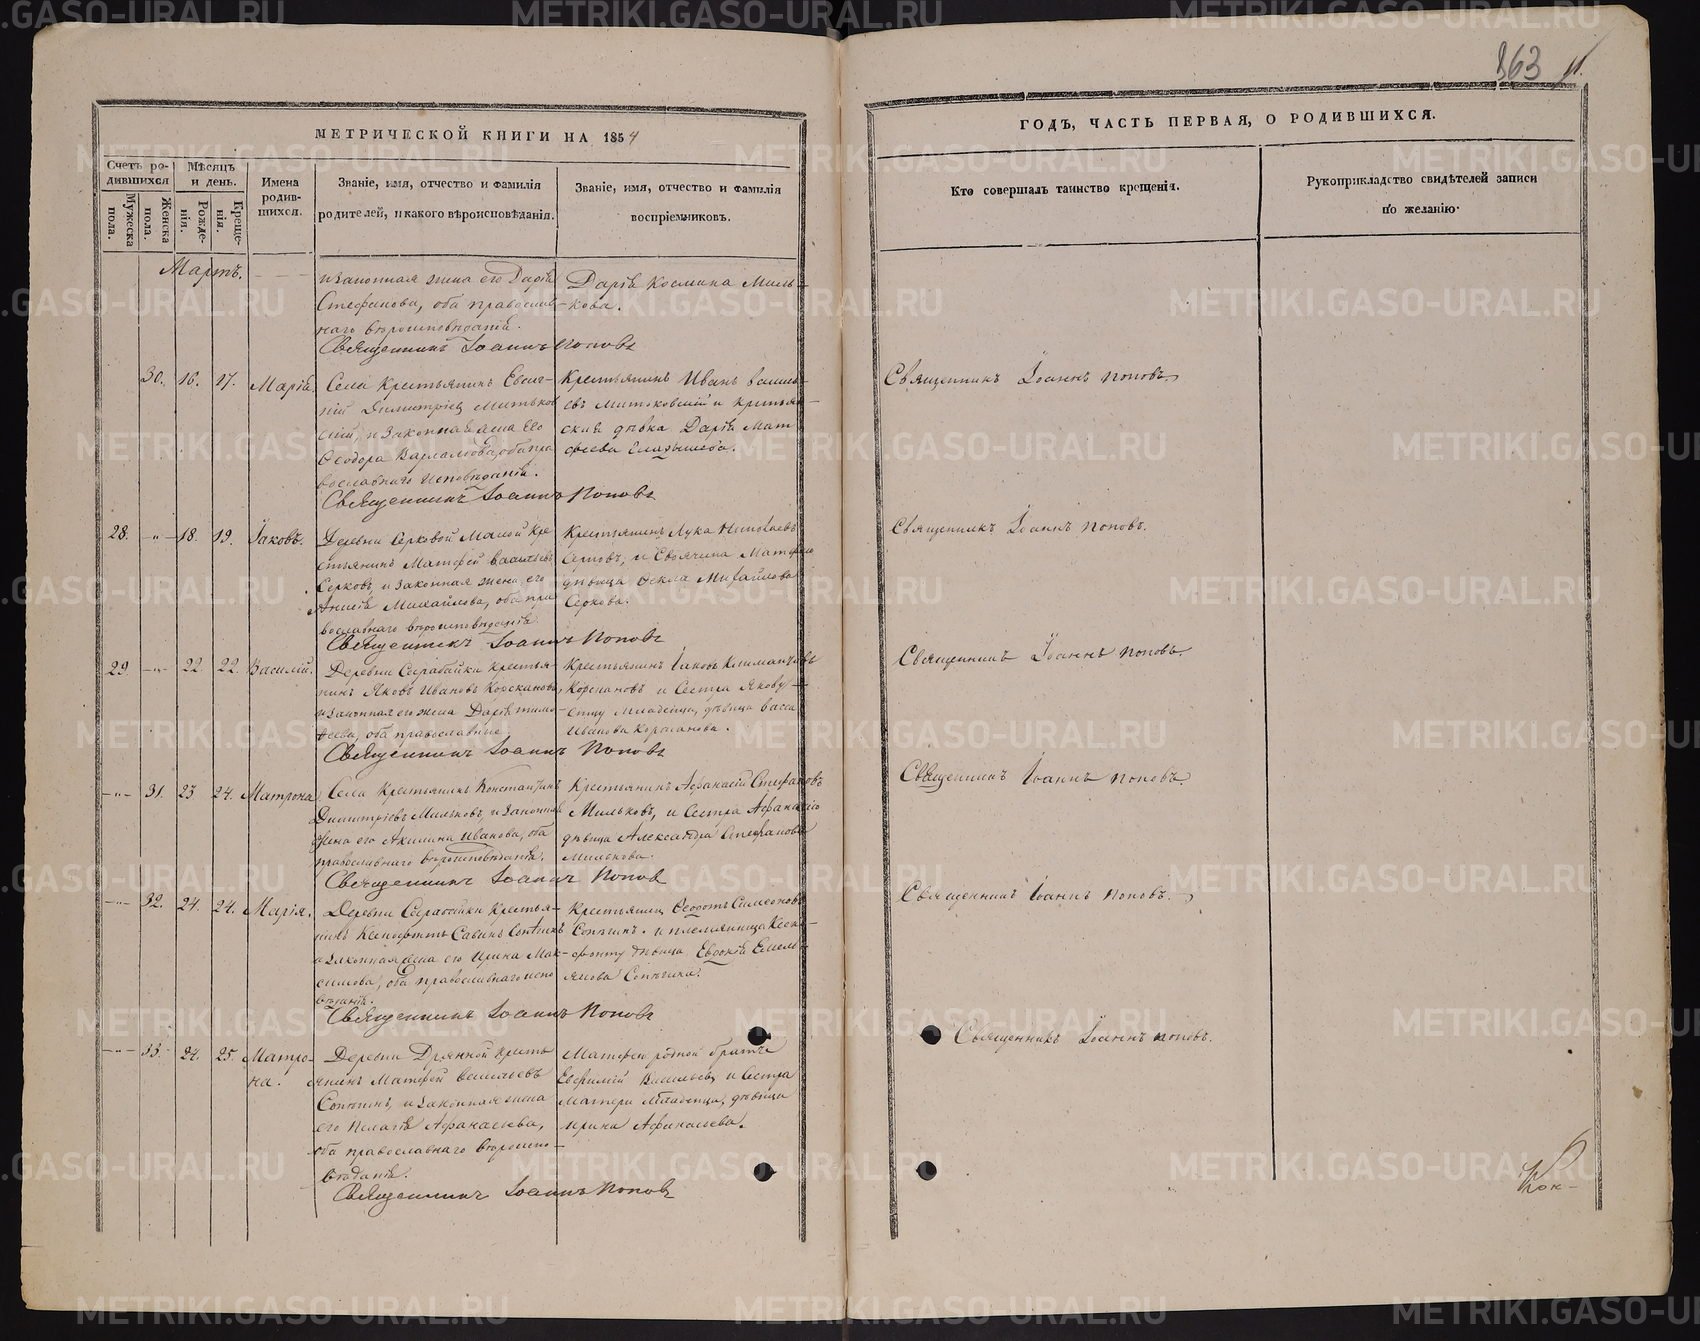 363
МЕТРИЧЕСКОЙ КНИГИ НА 1854
ГОДЪ, ЧАСТЬ ПЕРВАЯ, О РОДИВШИХСЯ.
Счетъ ро-
дившихся
Мужеска
пола.
Женска
пола.
Мѣсяцъ
и день.
Рожде-
нія.
Креще-
нія.
Имена
родив-
шихся.
Званіе, имя, отчество и фамилія
родителей, и какого вѣроисповѣданія.
Званіе, имя, отчество и фамилія
воспріемниковъ.
Кто совершалъ таинство крещенія.
Рукоприкладство свидѣтелей записи
по желанію.
Мартъ.
и законная жена его Дарія
Стефанова, оба православ-
наго вѣроисповѣданія.
Священникъ Іоаннъ Поповъ
Дарія Космина Миль-
кова.
30. 16. 17. Марія
Села Крестьянинъ Евге-
ній Димитріев Митьков
скій, и законная жена его
Ѳеодора Варламова, оба пра
вославнаго исповѣданія.
Священникъ Іоаннъ Поповъ
Крестьянинъ Иванъ Василь
евъ Митьковскій и крестьян-
ская дѣвка Дарія Мат
феева
Священникъ Іоаннъ Поповъ.
28. -"- 18. 19. Іаковъ.
Деревни Серковой Малой Кре
стьянинъ Матфей Васильевъ
Серковъ, и законная жена его
Анисія Михайлова, оба пра
вославнаго вѣроисповѣданія.
Священникъ Іоаннъ Поповъ
Крестьянинъ Лука
Серковъ, и Своячина Матфею
дѣвица Ѳекла Михайлова
Серкова.
Священникъ Іоаннъ Поповъ.
29 -"- 22. 22. Василій.
Деревни Сарабайки крестья-
нинъ Яковъ Ивановъ Корекановъ,
и законная его жена Дарія Тимо-
феева, оба православные
Священникъ Іоаннъ Поповъ
Крестьянинъ Іаковъ
и Сестра Якову
отцу Младенца, дѣвица Васса
Иванова
Священникъ Іоаннъ Поповъ.
-"- 31. 23 24. Матрона
Села Крестьянинъ Константинъ
Димитріевъ Мильковъ, и законная
жена его Акилина Иванова, оба
православнаго вѣроисповѣданія.
Священникъ Іоаннъ Попов
Крестьянинъ Афанасій Стефановъ
Мильковъ, и Сестра Афанасію
дѣвица Александра Стефанова
Милькова.
Священникъ Іоаннъ Поповъ.
-"- 32. 24. 24. Марія.
Деревни Сарабайки Крестья-
нинъ Ксенофонтъ Савинъ Сопыгинъ
и законная жена его Ирина Мак-
симова, оба православнаго испо
вѣданія.
Священникъ Іоаннъ Поповъ
Крестьянинъ Ѳедотъ Симеоновъ
Сопыгинъ. и племянница Ксено-
фонту дѣвица Евдокія Емель-
янова Сопыгина.
Священникъ Іоаннъ Поповъ.
-"- 33. 24. 25. Матро-
на.
Деревни Дрянной кресть
янинъ Матфей Васильевъ
Сопыгинъ, и законная жена
его Пелагія Афанасьева,
оба православнаго вѣроиспо-
вѣданія.
Священникъ Іоаннъ Поповъ
Матфею родной братъ
Евфимій Васильевъ, и Сестра
Матери Младенца, дѣвица
Ирина Афанасьева.
Священникъ Іоаннъ Поповъ.
METRIKI.GASO-URAL.RU